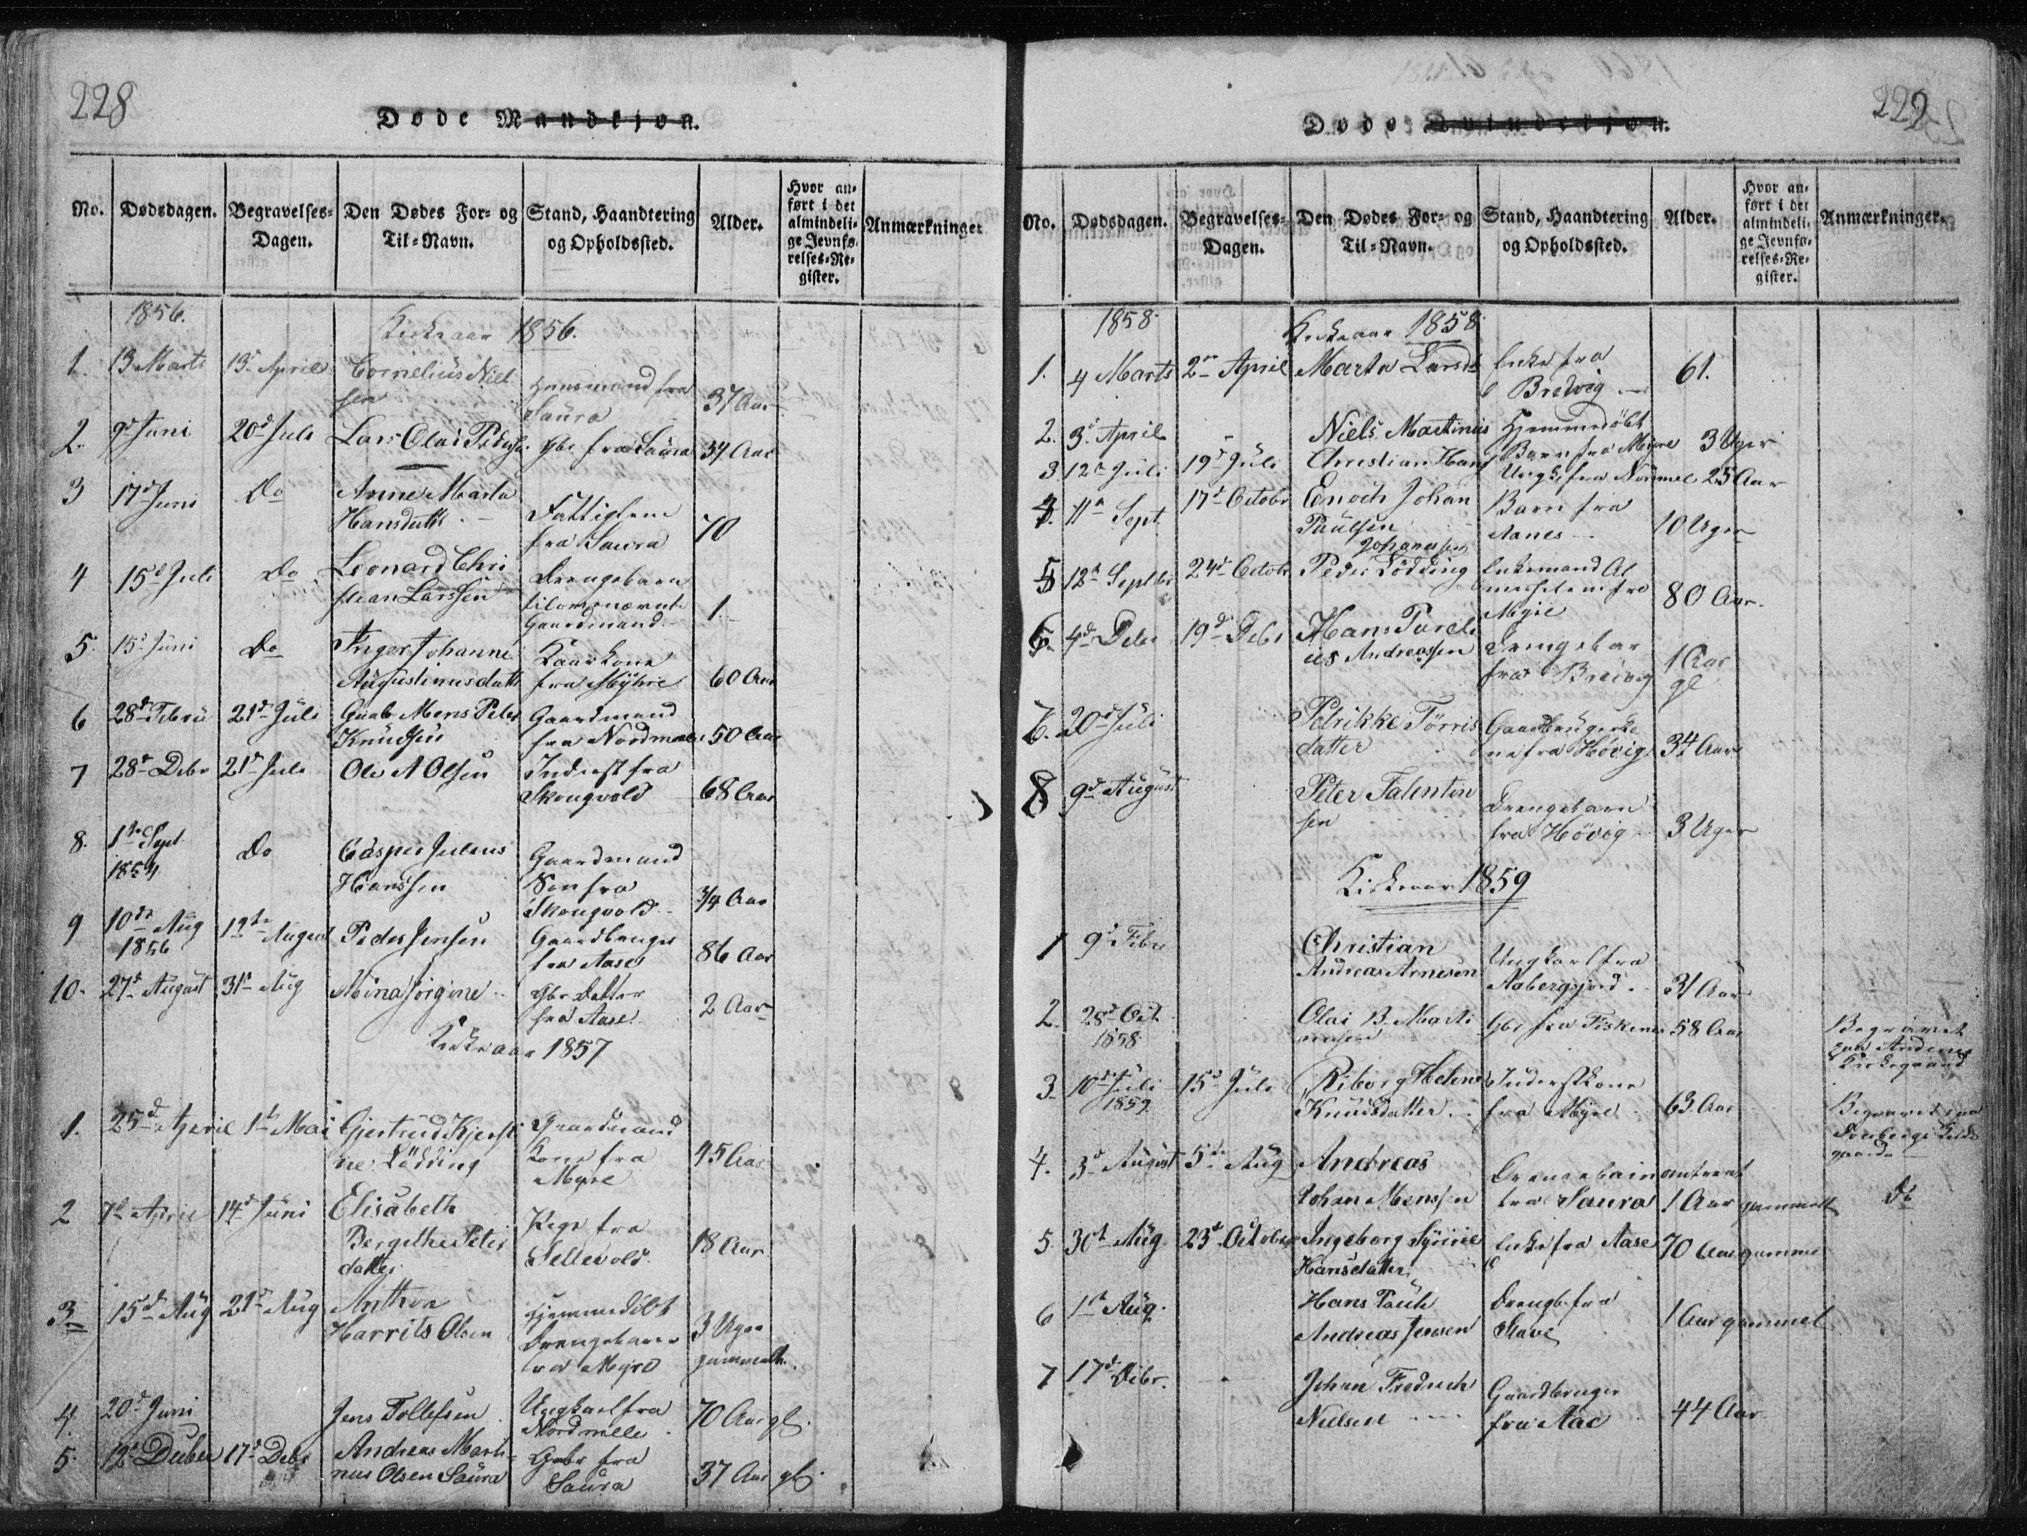 228
Døde Mandkjøn.
No. Dødsdagen. Begravelses-Dagen. Den Dødes For- og Til-Navn. Stand, Haandtering og Opholdssted. Alder. Hvor anført i det almindelige Jevnførelses-Register. Anmærkninger
1856. Kirkeaar 1856.
1. 13 Marts 13d April Cornelius Niel
sen Huusmand fra
Saura 37 Aar
2. 9d Juni 20d Juli Lars Olai Peders. Gbr fra Saura 34 Aar
3 17d Juni Do Anne Marta
Hansdatt. Fattiglem
fra Saura 70
4 15d Juli Do Leonard Chri
stian Larssen Drengebarn
Gaardmand 1.
5. 15d Juni Do Inger Johanne
Augustinusdatt Kaarkone
fra Myhre 60 Aar
6 28d Febru 21d Juli Mons Peter
Knudsen Gaardmand
fra Nordmele 50 Aar
7 28d Debr 21d Juli Ole A Olsen Inderst fra
Skougvold 68 Aar
8. 1ste Sept.
1854 Do Casper Julius
Hanssen Gaardmand
Søn fra
Skougvold 34 Aar
9 10de Aug
1856 12te August Peder Jensen Gaardbruger
fra Aase 86 Aar
10. 27d August 31te Aug Mina Jørgine Gbr Datter
fra Aase 2 Aar
Kirkeaar 1857
1. 25d April 1te Mai Gjertrud Kjersti
ne Lödding Gaardmand
Kone fra
Myre 45 Aar
2 7d April 14d Juni Elisabeth
Bergithe Peter
datter Pige fra
Sellevold 18 Aar
3 15d Aug 21d Aug Anthon
Harrits Olsen Hjemmedöbt
Drengebarn
fra Myre 3 Uger
gammelt.
4. 20d Juni Jens Tollefsen Ungkarl fra
Nordmele 70 Aar gl.
5. 12d Decber 17d Debr Andreas Marti-
nus Olsen Saura Gabr fra
Saura 37 Aar gl.
222
Døde Qvindekjøn.
No. Dødsdagen. Begravelses-Dagen. Den Dødes For- og Til-Navn. Stand, Haandtering og Opholdssted. Alder. Hvor anført i det almindelige Jevnførelses-Register. Anmærkninger.
1858. Kirkeaar 1858.
1. 4 Marts 2den April Marta Larsd Enke fra
Breivig 61.
2. 3d April Niels Martinus Hjemmedöbt
Barn fra Myre 3 Uger
3 12te Juli 19d Juli Christian Hans Ungk. fra Normele 25 Aar
4. 11te Sept. 17d Octobr Enoch Johan
Paulsen Barn fra
Aanes 10 Uger
5 12te Septbr 24d Octobr Peder Johannesen Lödding Enkemand
fra
Myre 80 Aar.
6 4d Debr 19d Debr Hans Pareli
us Andreassen Drengebar
fra Breivig 1 Aar
gl
7. 20d Juli Petrikke Törris
datter Gaardbrugerko
ne fra Hövig 34 Aar
8 9d August Peter Talenton
sen Drengebarn
fra Hövig 3 Uger
Kirkeaar 1859
1 9d Febr Christian
Andreas Arnesen Ungkarl fra
Aabergsjord. 31 Aar
2. 28d Oct.
1858 Olai B. Marti
nusen Gbr fra Fiskenes 58 Aar Begravet
paa Andenes
Kirkegaard
3. 10d Juli
1859 15d Juli Riborg Helene
Knudsdatter. Inderstkone
fra Myre 63 Aar Begravet paa
4. 3d August 5te Aug Andreas
Johan Monssen Drengebarn omtrent
fra Saura 1 Aar gammelt Do
5. 30d Aug 23d October Ingeborg Syrine
Hansdatter Enke fra Aase 70 Aar gammel
6 1te Aug. Hans Paule
Andreas Jensen Drengb. fra
Stave 1 Aar gammel
7 17d Debr. Johan Fredrich
Nielsen Gaardbruger
fra Aae 44 Aar